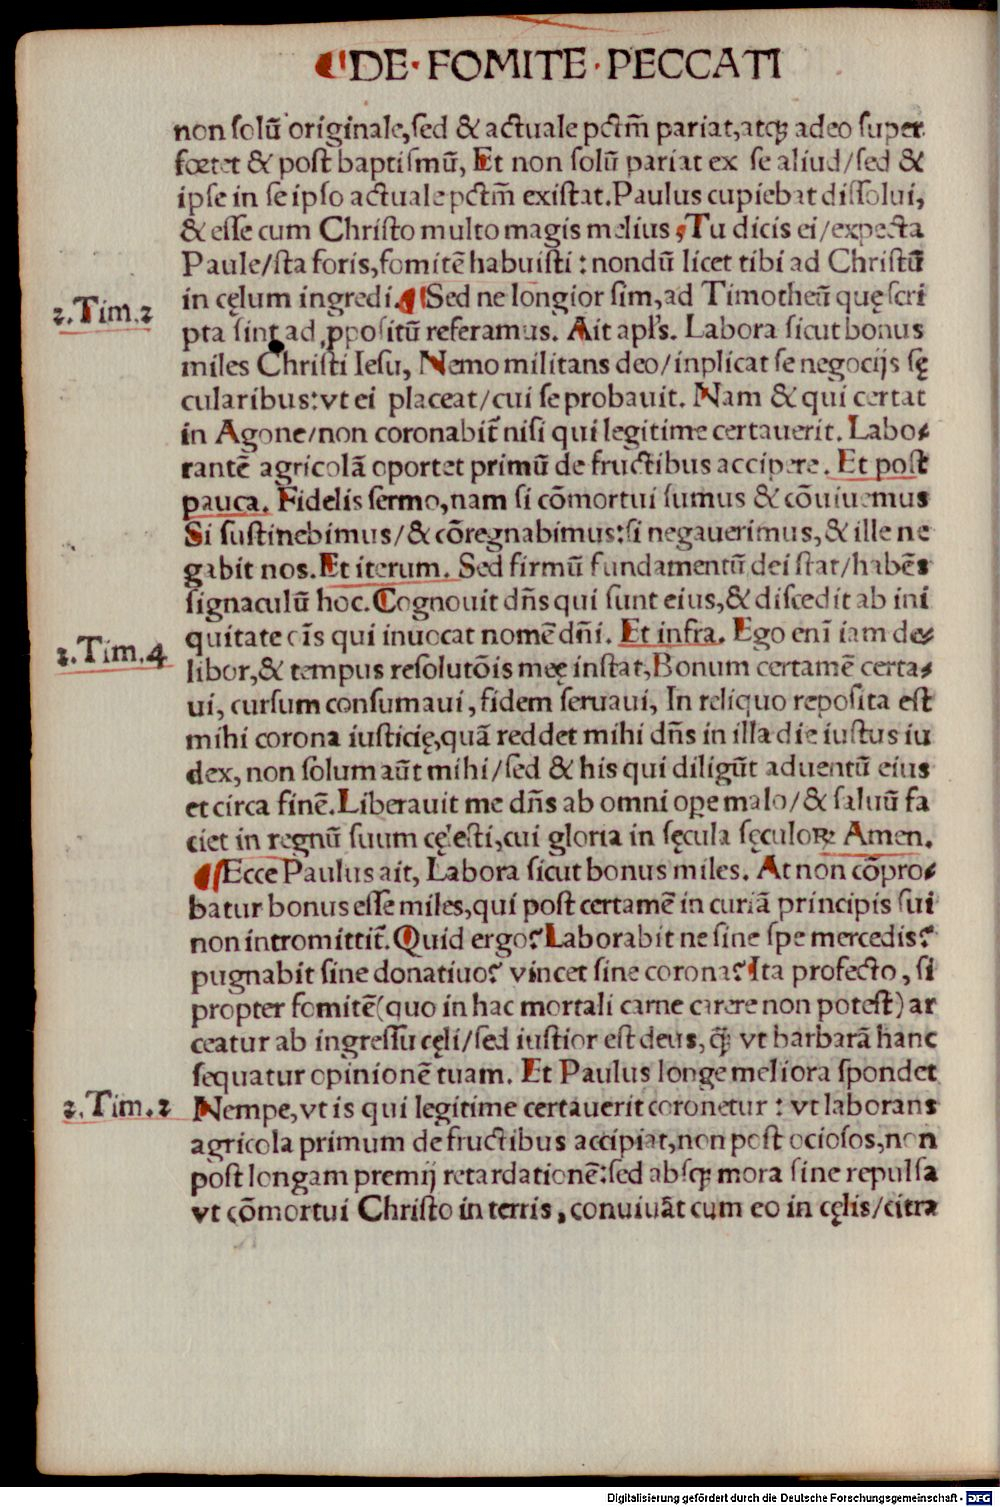 DE · FOMITE · PECCATI
non solũ originale,sed & actuale pctm̃ pariat,atq; adeo super
fœtet & post baptismũ, Et non solũ pariat ex se aliud/sed &
ipse in se ipso actuale pctm̃ existat.Paulus cupiebat dissolui,
& esse cum Christo multo magis melius , Tu dicis ei/expecta
Paule/sta foris,fomitẽ habuisti : nondũ licet tibi ad Christũ
in cęlum ingredi. ¶ Sed ne longior sim,ad Timotheũ quę scri
2.Tim.2
pta sint ad ꝓpositũ referamus. Ait apl's. Labora sicut bonus
miles Christi Iesu, Nemo militans deo/inplicat se negocijs sę
cularibus:vt ei placeat/cui se probauit. Nam & qui certat
in Agone/non coronabit̃ nisi qui legitime certauerit. Labo⸗
rantẽ agricolã oportet primũ de fructibus accipere. Et post
pauca. Fidelis sermo,nam si cõmortui sumus & cõuiuemus
Si sustinebimus/& cõregnabimus:si negauerimus,& ille ne
gabit nos.Et iterum. Sed firmũ fundamentũ dei stat/habẽs
signaculũ hoc.Cognouit dñs qui sunt eius,& discedit ab ini
quitate oĩs qui inuocat nomẽ dñi. Et infra. Ego enĩ iam de⸗
2.Tim.4
libor,& tempus resolutõis meę instat,Bonum certamẽ certa⸗
ui, cursum consumaui, fidem seruaui, In reliquo reposita est
mihi corona iusticię,quã reddet mihi dñs in illa die iustus iu
dex, non solum aũt mihi/sed & his qui diligũt aduentũ eius
et circa finẽ.Liberauit me dñs ab omni ope malo/& saluũ fa
ciet in regnũ suum cęlesti,cui gloria in sęcula sęculoꝝ Amen.
¶ Ecce Paulus ait, Labora sicut bonus miles. At non cõpro⸗
batur bonus esse miles,qui post certamẽ in curiã principis sui
non intromittit̃. Quid ergo? Laborabit ne sine spe mercedis?
pugnabit sine donatiuo? vincet sine corona? Ita profecto, si
propter fomitẽ(quo in hac mortali carne carere non potest) ar
ceatur ab ingressu cęli/sed iustior est deus, q̃; vt barbarã hanc
sequatur opinionẽ tuam. Et Paulus longe meliora spondet
Nempe,vt is qui legitime certauerit coronetur : vt laborans
2.Tim.2
agricola primum de fructibus accipiat,non post ociosos,non
post longam premij retardationẽ:sed absq; mora sine repulsa
vt cõmortui Christo in terris, conuiuãt cum eo in cęlis/citra
Digitalisierung gefördert durch die Deutsche Forschungsgemeinschaft - DFG